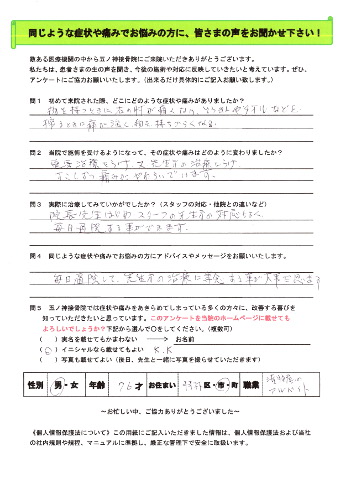 同じような症状や痛みでお悩みの方に、皆さまの声をお聞かせ下さい！
数ある医療機関の中から五ノ神接骨院にご来院いただきありがとうございます。
私たちは、患者さまの生の声を聞き、今後の施術や対応に反映していきたいと考えています。ぜひ、
アンケートにご協力お願いいたします。（出来るだけ具体的にご記入お願い致します。）
問１ 初めて来院された際、どこにどのような症状や痛みがありましたか？
問２ 当院で施術を受けるようになって、その症状や痛みはどのように変わりましたか？
電気治療をうけ、又先生方の治療をうけ
すこしずつ痛みがやわらいでいます。
問３ 実際に治療してみていかがでしたか？（スタッフの対応・他院との違いなど）
院長先生はじめスタッフの方の対応もよく
毎日通院する事ができます。
問４ 同じような症状や痛みでお悩みの方にアドバイスやメッセージをお願いいたします。
毎日通院して、先生方の治療に専念する事が大事で
問５ 五ノ神接骨院では症状や痛みをあきらめてしまっている多くの方々に、改善する喜びを
知っていただきたいと思っています。このアンケートを当院のホームページに載せても
よろしいでしょうか？下記から選んで〇をしてください。（複数可）
（ ）実名を載せてもかまわない ―――> お名前
（〇）イニシャルなら載せてもよい K.K
（ ）写真も載せてよい（後日、先生と一緒に写真を撮らせていただきます）
性別 男・女 年齢 76才 お住まい 区・市・町 職業 アルバイト
～お忙しい中、ご協力ありがとうございました～
《個人情報保護法について》この用紙にご記入いただきました情報は、個人情報保護法および当社
の社内規則や規程、マニュアルに準拠し、厳正な管理下で安全に取扱います。